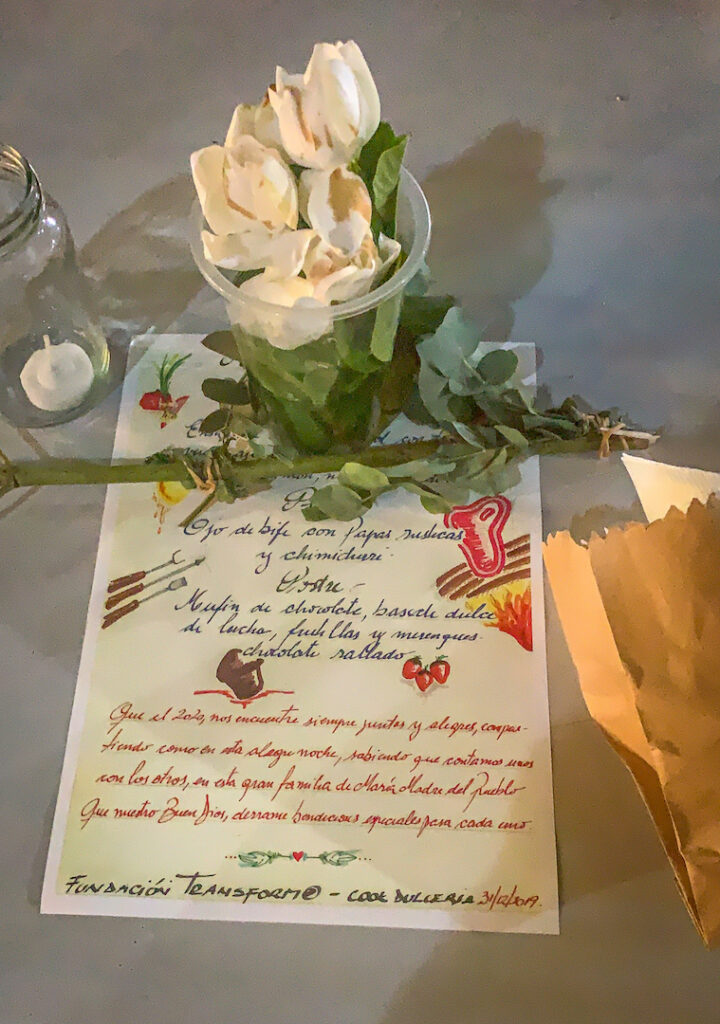 con
Ojo de bife con Papas rusticas
y chimichuri.
Postre.-
Mufin de chocolate, base de dulce
de leche, frutillas y merengues.
chocolate rallado
Que el 2020, nos encuentre siempre juntos y alegres, compar-
tiendo como en esta alegre noche, sabiendo que contamos unos
con los otros, en esta gran familia de María Madre del Pueblo
Que nuestro Buen Dios, derrame bendiciones especiales para cada uno.
FUNDACIÓN TRANSFORM@ - COOK DULCERIA 31/12/2019.